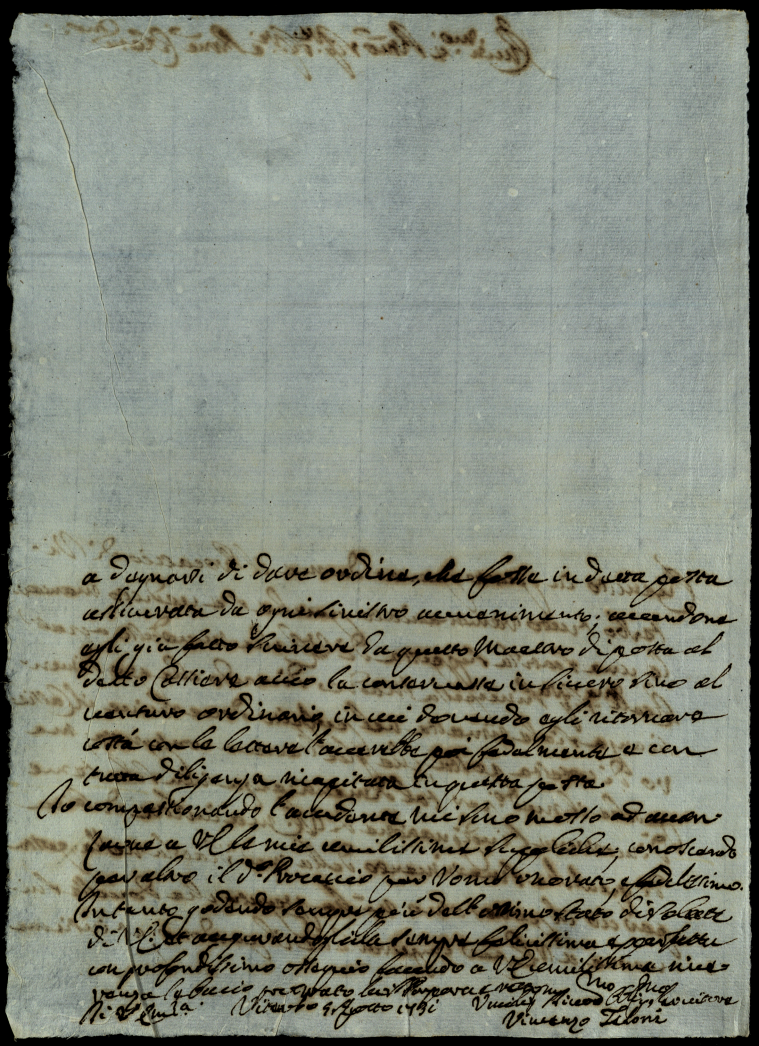 a degnarsi di dare ordine, che fosse in detta posta
da ogni sinistro avvenimento; avendone
egli già fatto scrivere da questo Maestro di posta al
detto acciò la conservasse in sicuro sino al
venturo ordinario, in cui dovendo egli ritornare
costà con le lettere l'averebbe poi fedelmente e con
tutta diligenza ricapitata in questa posta
Io compassionando l'accidente mi sono mosso ad avan
zare a le mie umilissime suppliche, conoscendo
per altro il d.o Procaccio per Uomo onorato, e fedelissimo.
Intanto godendo sempre più dell'ottimo stato di salute
di V. Em. et augurandogliela sempre felicissima e perfetta
con profondissimo ossequio facendo a umilissima rive
renza le bacio la Porpora e
Di V. Em.za Viterbo Agosto
Vincenzo